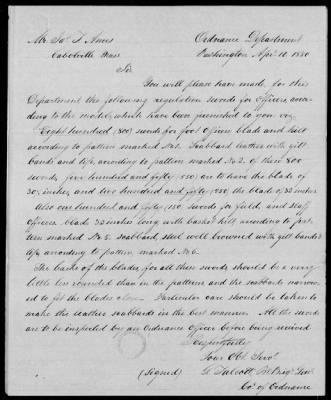 Mr. Jas. T. Ames
Cabotville Mass
Ordnance Department
Washington Apr. 10. 1850
Sir
You will please have made, for this
Department the following regulation swords for officers, accor-
ding to the models, which have been furnished to you viz
Eight hundred (800) swords for foot officers blade and hilt
according to pattern marked No 1. Scabbard leather with gilt
bands and tip, according to pattern marked No 2. of these 800
swords, five hundred and fifty (550) are to have the blade of
30 inches, and two hundred and fifty (250) the blade of 32 inches
Also one hundred and fifty (150) swords for field, and staff
officers blade 32 inches long, with basket hilt, according to pat-
tern marked No 5. scabbard, steel well browned with gilt bands &
tip, according to pattern marked No 6.
The backs of the blades, for all these swords should be a very
little less rounded than in the patterns and the scabbards narrow-
ed to fit the blades close. Particular care should be taken to
make the leather scabbards in the best manner. All the swords
are to be inspected by an Ordnance Officer before being received
Respectfully
Your Obt. Servt.
(Signed) G. Talcott Bt Brig. Genl.
Col. of Ordnance